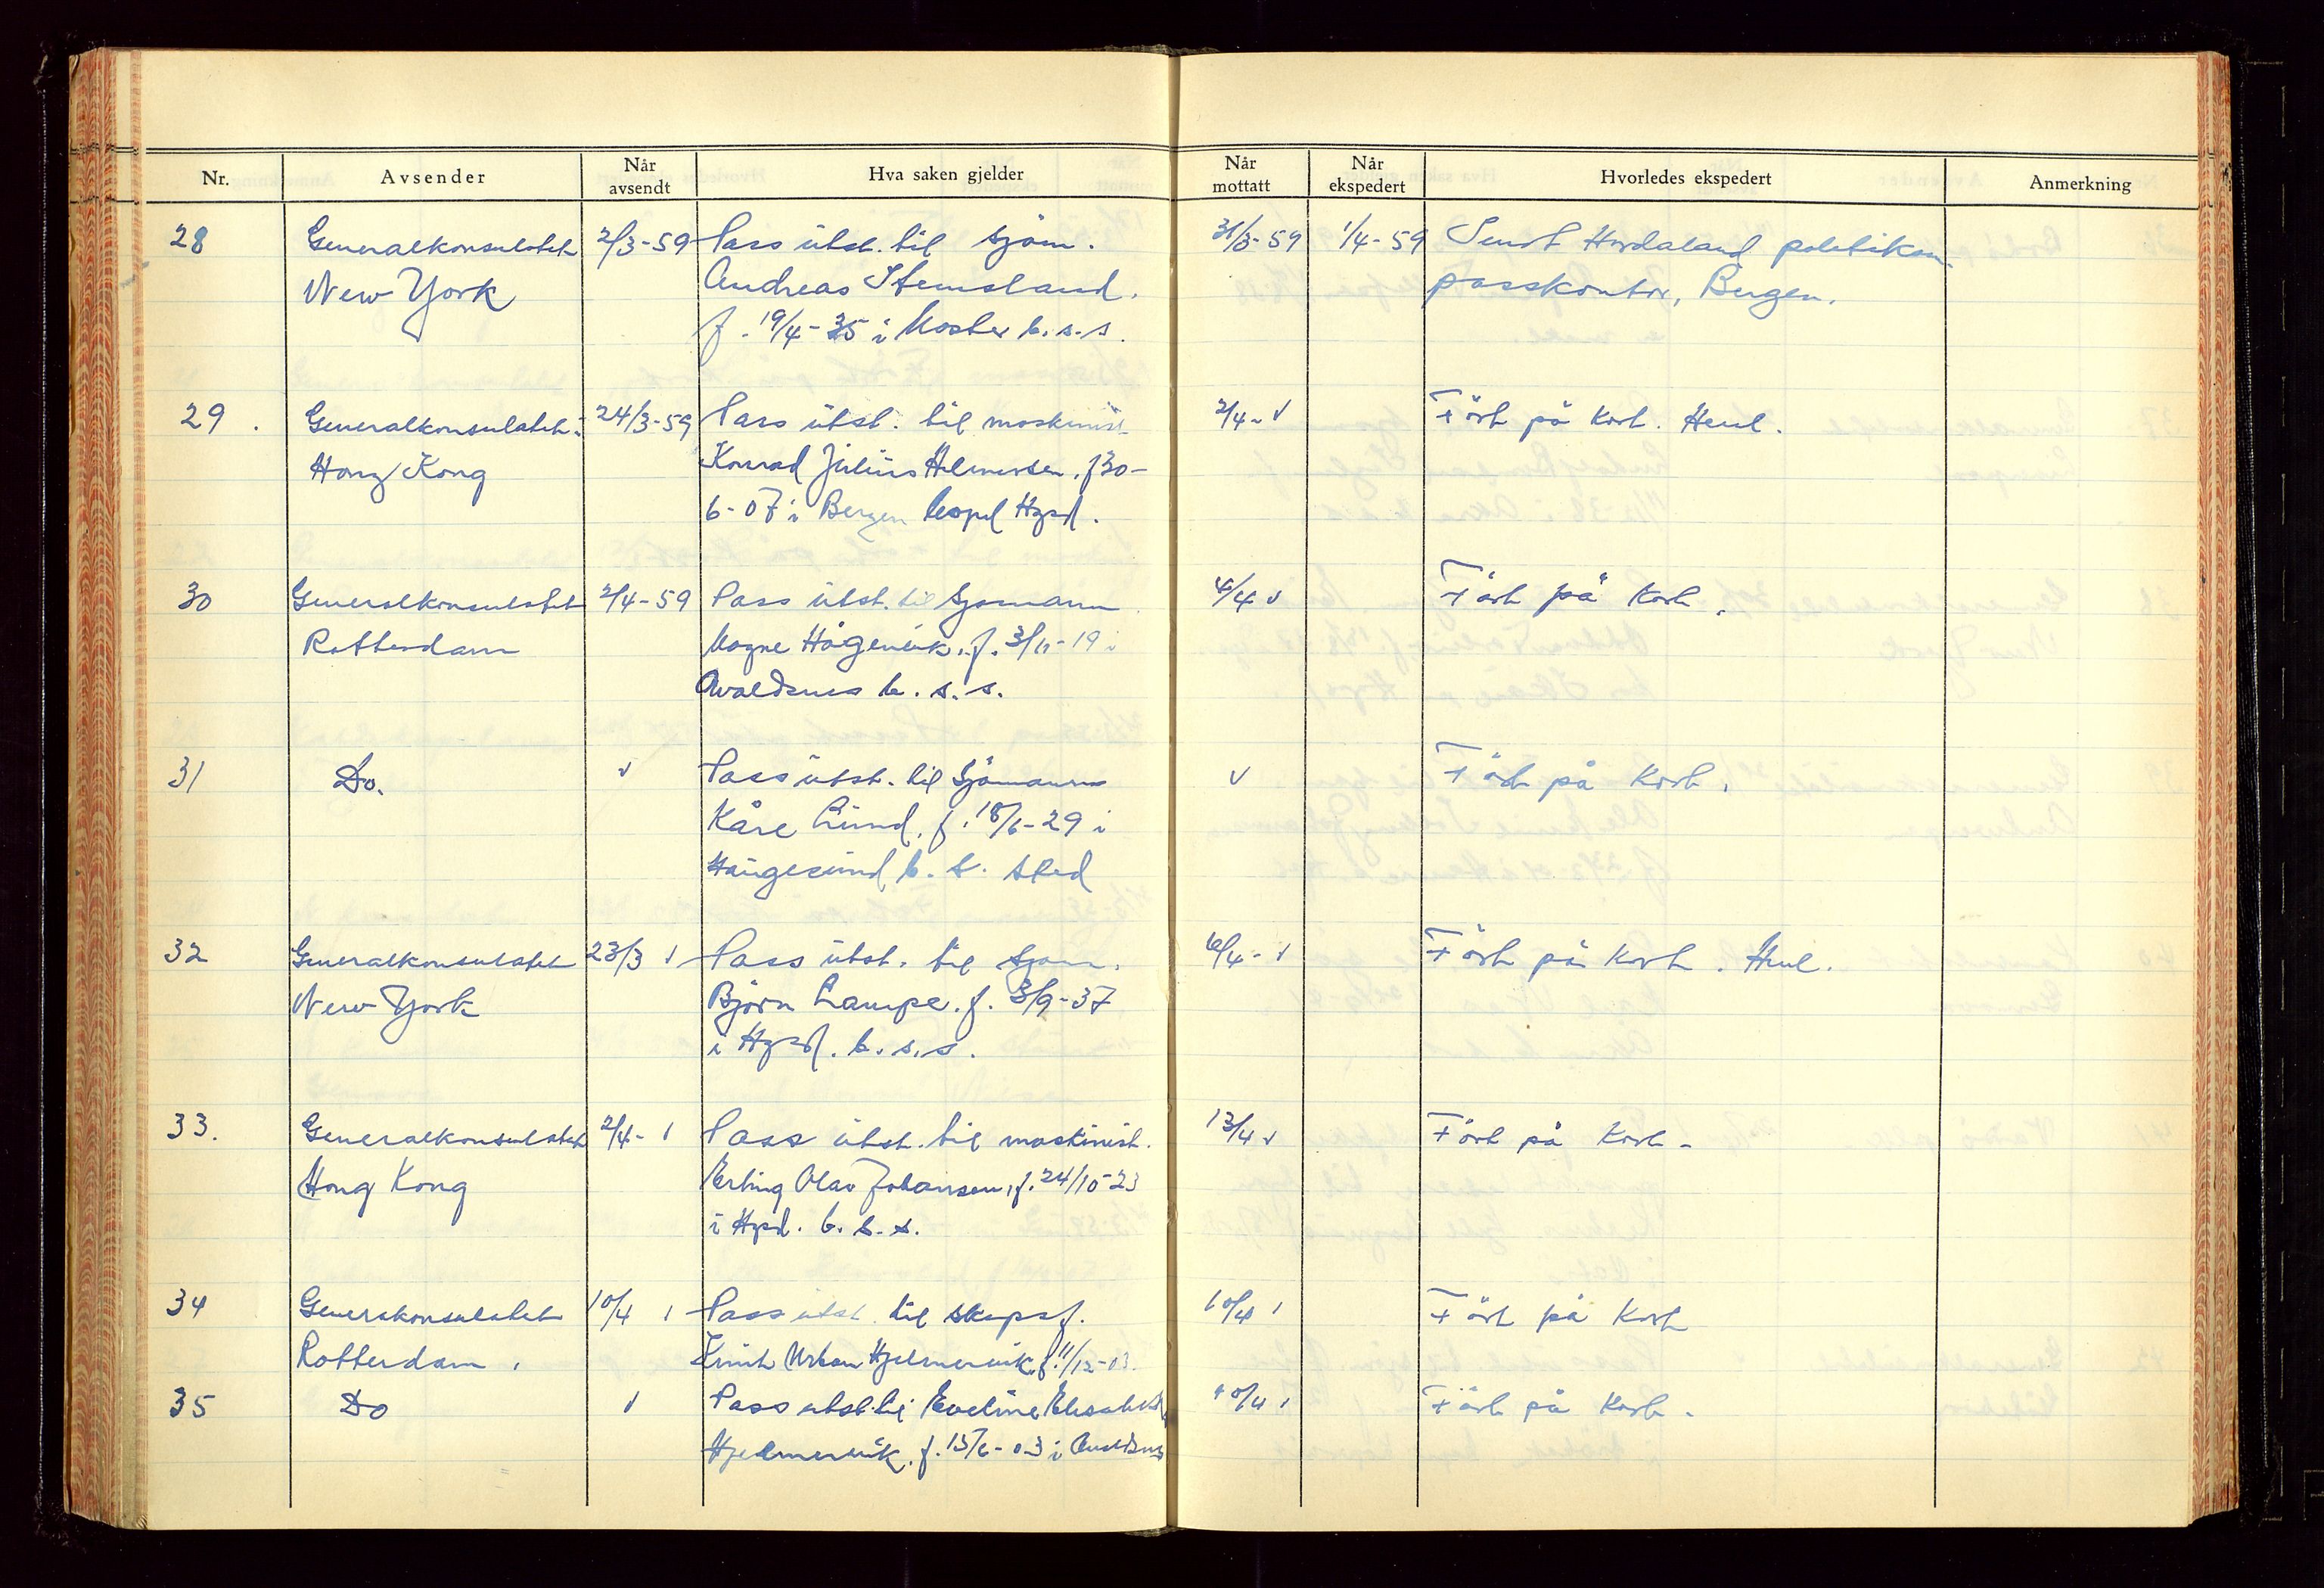 Nr. Avsender Når avsendt Hva saken gjelder Når mottatt Når ekspedert Hvorledes ekspedert Anmerkning
28 Generalkonsulatet 2/3-59 Pass utst. til sjøm. 31/3-59 1/4-59 Sendt Hordaland politikam.
New York Andreas Stemsland. passkontor, Bergen.
f. 19/4-35 i Moster b. s. s.
29. Generalkonsulatet 24/3-59 Pass utst. til maskinist 2/4- Ført på kort. Henl.
Hong Kong Konrad Julius Helmersen, f 30-
6-07 i Bergen bopel Hgsd.
30 Generalkonsulatet 2/4-59 Pass utst. til Sjømann 6/4 Ført på kort.
Rotterdam Mogne Hågenvik, f. 3/11-19 i
Avaldsnes b. s. s.
31 Do. Pass utst. til Sjömann Ført på kort.
Kåre Lund, f. 18/6-29 i
Haugesund b. s. sted
32 Generalkonsulatet 23/3 Pass utst. til Sjøm. 6/4- Ført på kort. Henl.
New York Björn Lampe. f. 3/9-37
i Hgsd. b. s. s.
33. Generalkonsulatet 2/4- Pass utst. til maskinist. 13/4 Ført på kort.
Hong Kong Erling Olav Johansen, f. 24/10-23
i Hgsd. b. s. s.
34 Generalkonsulatet 10/4 Pass utst til skipsf. 10/4 Ført på kort
Rotterdam. Urban Hjelmervik f. 11/12-03.
35 Do Pass utst. til Eveline Elisabeth 10/4 Ført på kort.
Hjelmervik. f. 15/6-03 i Avaldsnes